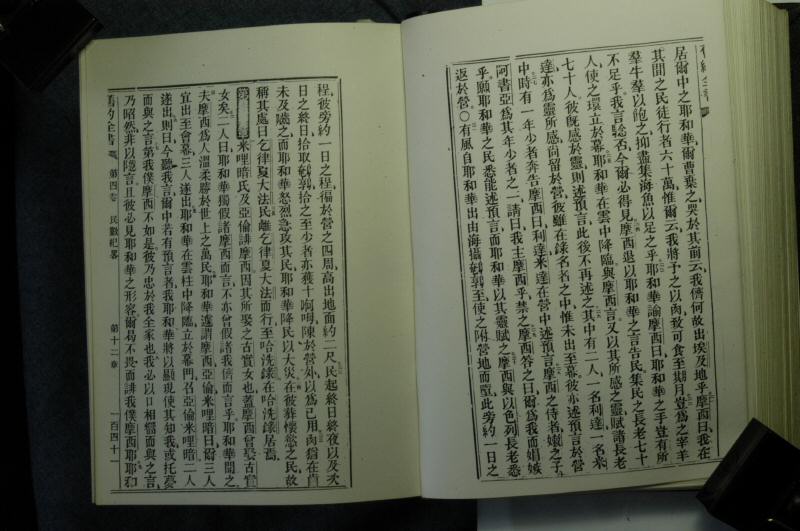 舊約全書
居爾中之耶和華爾曹葉之哭於其前云我儕何故出埃及地乎摩西曰我在
其間之民徒行者六十萬惟爾云我將予之以肉致可食至期月豈為之宰羊
羣牛羣以飽之抑盡集海魚以足之乎耶和華諭摩西曰耶和華之手豈有所
不足乎我言驗否今爾必得見摩西退以耶和華之言告民集民之長老七十
人使之環立於幕耶和華在雲中降臨與摩西言又以其所感之靈賦諸長老
七十人彼既感於靈則述預言此後不再述之其中有二人一名利達一名米
達亦為靈所感尚留於營彼雖在錄名之中惟未出至幕彼亦述預言於營
中時有一年少者奔告摩西曰利達米達在營中述預言摩西之侍者嫩之子
阿書亞為其年少者之一請曰我主摩西乎禁之摩西答之曰爾為我而娼嫉
乎願耶和華之民悉能述預言而耶和華以其靈賦之摩西與以色列長老悉
返於營○有風自耶和華出由海攝鵪鶉至使之附營地而墮此旁約一日之
程彼旁約一日之程徧於營之四周高出地面約二尺民起終日終夜以及次
日之終日拾取鵪鶉拾之至少者亦獲十㖔咩陳於營外以為己用肉猶在齒
未及嚼之而耶和華怒烈急攻其民耶和華降民以大災在彼葬懷慾之民故
稱其處曰乞律夏大法民離乞律夏大法而行至哈洗錄在哈洗錄居焉
米哩暗氏及亞倫誹摩西因其所娶之古實女也蓋摩西曾娶古實
女矣二人曰耶和華獨假諸摩西而言不亦曾假諸我儕而言乎耶和華聞之
夫摩西為人溫柔勝於世上之萬民耶和華遽謂摩西亞倫米哩暗曰爾三人
宜出至會幕三人遂出耶和華在雲柱中降臨立於幕門召亞倫米哩暗二人
遂出則曰今聽我言爾中若有預言者我耶和華將以顯現使其知我或托夢
而與之言第我僕摩西不如是彼乃忠於我全家也我必以口相觸而與之言
乃昭然非以隱言且彼必見耶和華之形容爾曷不畏而誹我僕摩西耶耶和
舊約全書 第四卷 民數紀畧 第十二章 一百四十一